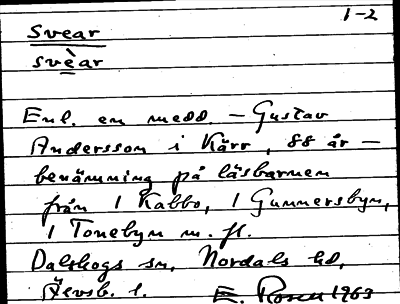 1-2
Svear
svèar
Enl. en medd. – Gustav
Andersson i Kärr, 88 år –
benämning på läsbarnen
från 1 Kabbo, 1 Gunnersbyn,
1 Tonebyn m. fl.
Dalskogs sn, Nordals hd,
Älvsb. l. E. Rosen 1963